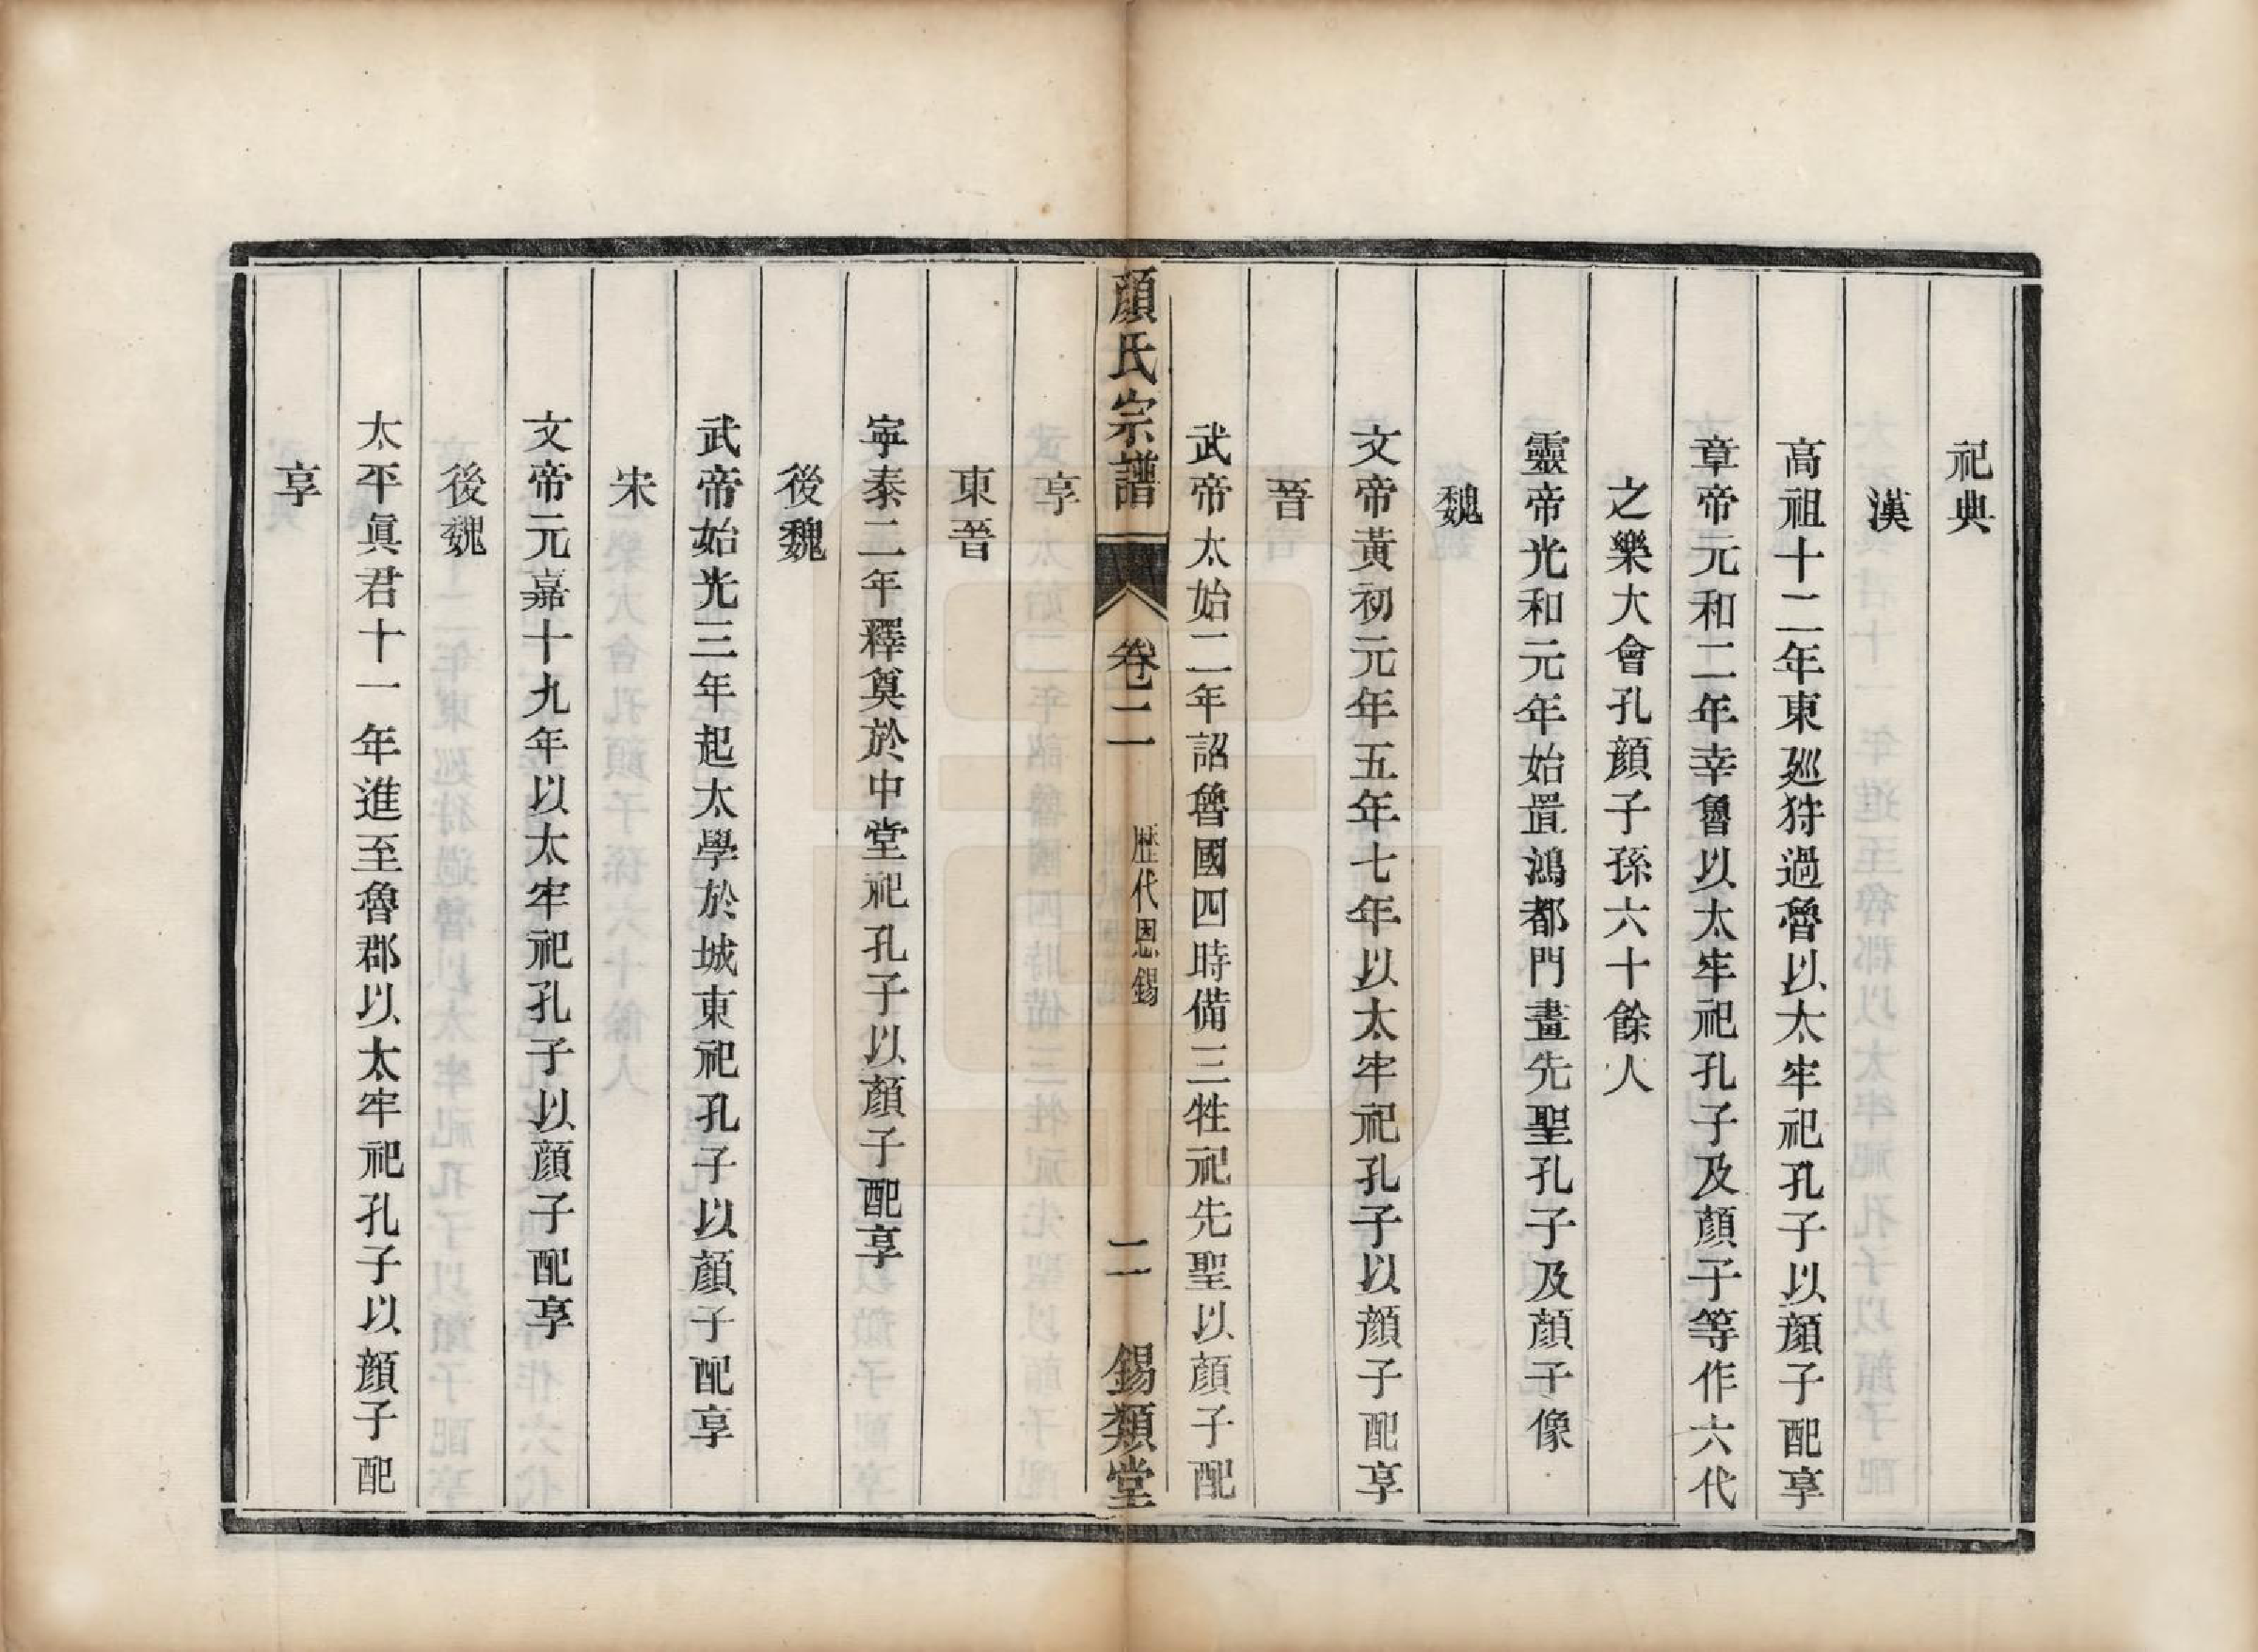 祀典
漢
高祖十二年東廵狩過魯以太牢祀孔子以顔子配享
章帝元和二年幸魯以太牢祀孔子及顔子等作六代
之樂大會孔顔子孫六十餘人
靈帝光和元年始置鴻都門畫先聖孔子及顔子像
魏
文帝黃初元年五年七年以太牢祀孔子以顔子配享
晉
武帝太始二年詔魯國四時備三牲祀先聖以顔子配
顔氏宗譜
卷二
歷代恩錫
二
錫類堂
享
東晉
寜泰二年釋奠於中堂祀孔子以顔子配享
後魏
武帝始光三年起太學於城東祀孔子以顔子配享
宋
文帝元嘉十九年以太牢祀孔子以顔子配享
後魏
太平眞君十一年進至魯郡以太牢祀孔子以顔子配
享